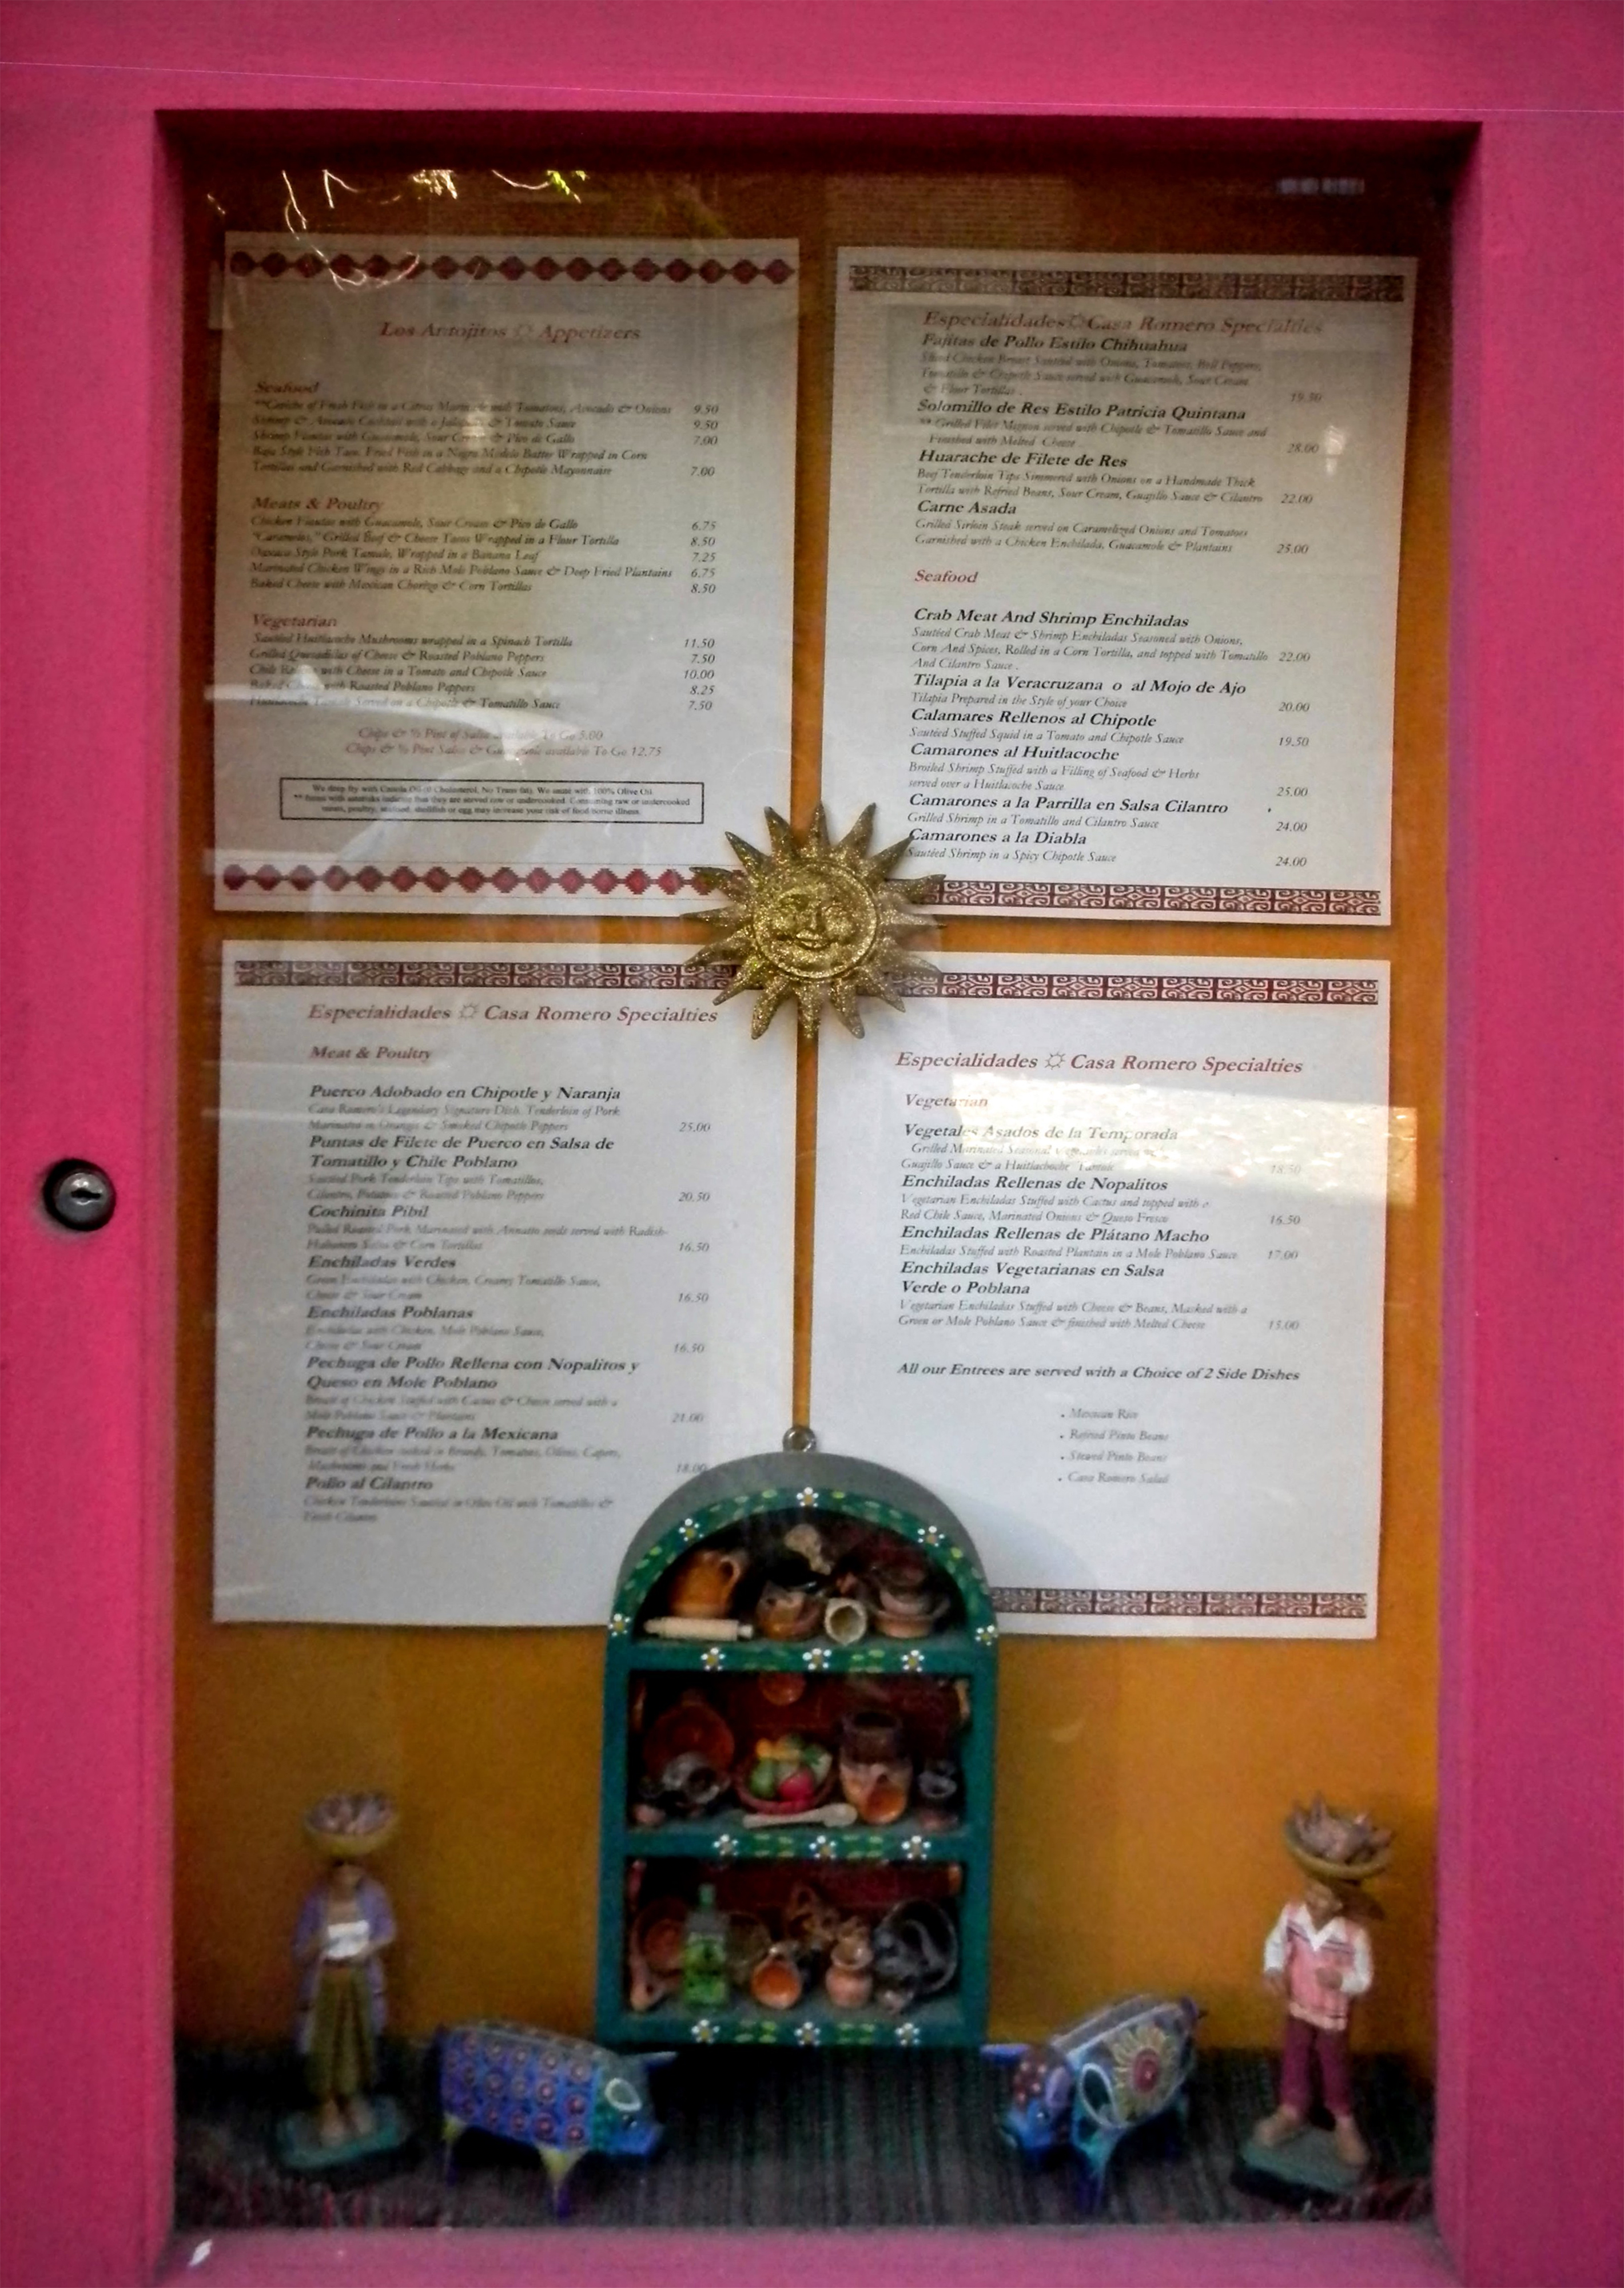 Los Antojitos Appetizers
Seafood
**Ceviche of Fresh Fish in a Citrus Marinade with Tomatoes, Avocado & Onions 9.50
Shrimp & Avocado Cocktail with a Jalapeño & Tomato Sauce 9.50
Shrimp Flautas with Guacamole, Sour Cream & Pico de Gallo 7.00
Baja Style Fish Taco, Fried Fish in a Negra Modelo Batter Wrapped in Corn
Tortillas and Garnished with Red Cabbage and a Chipotle Mayonnaise 7.00
Meats & Poultry
Chicken Flautas with Guacamole, Sour Cream & Pico de Gallo 6.75
"Caramelos," Grilled Beef & Cheese Tacos Wrapped in a Flour Tortilla 8.50
Oaxaca Style Pork Tamale, Wrapped in a Banana Leaf 7.25
Marinated Chicken Wings in a Rich Mole Poblano Sauce & Deep Fried Plantains 6.75
Baked Cheese with Mexican Chorizo & Corn Tortillas 8.50
Vegetarian
Sautéed Huitlacoche Mushrooms wrapped in a Spinach Tortilla 11.50
Grilled Quesadillas of Cheese & Roasted Poblano Peppers 7.50
Chile with Cheese in a Tomato and Chipotle Sauce 10.00
Baked Cheese with Roasted Poblano Peppers 8.25
Tamale Served on a Chipotle & Tomatillo Sauce 7.50
Chips & ½ Pint of Salsa available To Go 5.00
Chips & ½ Pint Salsa & Guacamole available To Go 12.75
We deep fry with Canola Oil (0 Cholesterol, No Trans fat). We sauté with 100% Olive Oil.
** Items with asterisks indicate that they are served raw or undercooked. Consuming raw or undercooked
meats, poultry, seafood, shellfish or egg may increase your risk of food borne illness.
Especialidades Casa Romero Specialties
Fajitas de Pollo Estilo Chihuahua
Sliced Chicken Breast Sautéed with Onions, Tomatoes, Bell Peppers,
Tomatillo & Chipotle Sauce served with Guacamole, Sour Cream
& Flour Tortillas . 19.50
Solomillo de Res Estilo Patricia Quintana
** Grilled Filet Mignon served with Chipotle & Tomatillo Sauce and
Finished with Melted Cheese 28.00
Huarache de Filete de Res
Beef Tenderloin Tips Simmered with Onions on a Handmade Thick
Tortilla with Refried Beans, Sour Cream, Guajillo Sauce & Cilantro 22.00
Carne Asada
Grilled Sirloin Steak served on Caramelized Onions and Tomatoes
Garnished with a Chicken Enchilada, Guacamole & Plantains 25.00
Seafood
Crab Meat And Shrimp Enchiladas
Sautéed Crab Meat & Shrimp Enchiladas Seasoned with Onions,
Corn And Spices, Rolled in a Corn Tortilla, and topped with Tomatillo 22.00
And Cilantro Sauce .
Tilapia a la Veracruzana o al Mojo de Ajo
Tilapia Prepared in the Style of your Choice 20.00
Calamares Rellenos al Chipotle
Sautéed Stuffed Squid in a Tomato and Chipotle Sauce 19.50
Camarones al Huitlacoche
Broiled Shrimp Stuffed with a Filling of Seafood & Herbs
served over a Huitlacoche Sauce 25.00
Camarones a la Parrilla en Salsa Cilantro
Grilled Shrimp in a Tomatillo and Cilantro Sauce 24.00
Camarones a la Diabla
Sautéed Shrimp in a Spicy Chipotle Sauce 24.00
Especialidades Casa Romero Specialties
Meat & Poultry
Puerco Adobado en Chipotle y Naranja
Casa Romero's Legendary Signature Dish. Tenderloin of Pork
Marinated in Oranges & Smoked Chipotle Peppers 25.00
Puntas de Filete de Puerco en Salsa de
Tomatillo y Chile Poblano
Sautéed Pork Tenderloin Tips with Tomatillos,
Cilantro, Potatoes & Roasted Poblano Peppers 20.50
Cochinita Pibil
Pulled Roasted Pork Marinated with Annatto seeds served with Radish-
Habanero Salsa & Corn Tortillas 16.50
Enchiladas Verdes
Green Enchiladas with Chicken, Creamy Tomatillo Sauce,
Cheese & Sour Cream 16.50
Enchiladas Poblanas
Enchiladas with Chicken, Mole Poblano Sauce,
Cheese & Sour Cream 16.50
Pechuga de Pollo Rellena con Nopalitos y
Queso en Mole Poblano
Breast of Chicken Stuffed with Cactus & Cheese served with a
Mole Poblano Sauce & Plantains 21.00
Pechuga de Pollo a la Mexicana
Breast of Chicken cooked in Brandy, Tomatoes, Olives, Capers,
Mushrooms and Fresh Herbs 18.00
Pollo al Cilantro
Chicken Tenderloins Sautéed in Olive Oil with Tomatillos &
Fresh Cilantro
Especialidades Casa Romero Specialties
Vegetarian
Vegetales Asados de la Temporada
Grilled Marinated Seasonal Vegetables served
Guajillo Sauce & a Huitlacoche Tamale 18.50
Enchiladas Rellenas de Nopalitos
Vegetarian Enchiladas Stuffed with Cactus and topped with a
Red Chile Sauce, Marinated Onions & Queso Fresco 16.50
Enchiladas Rellenas de Plátano Macho
Enchiladas Stuffed with Roasted Plantain in a Mole Poblano Sauce 17.00
Enchiladas Vegetarianas en Salsa
Verde o Poblana
Vegetarian Enchiladas Stuffed with Cheese & Beans, Masked with a
Green or Mole Poblano Sauce & finished with Melted Cheese 15.00
All our Entrees are served with a Choice of 2 Side Dishes
• Mexican Rice
• Refried Pinto Beans
• Stewed Pinto Beans
• Casa Romero Salad